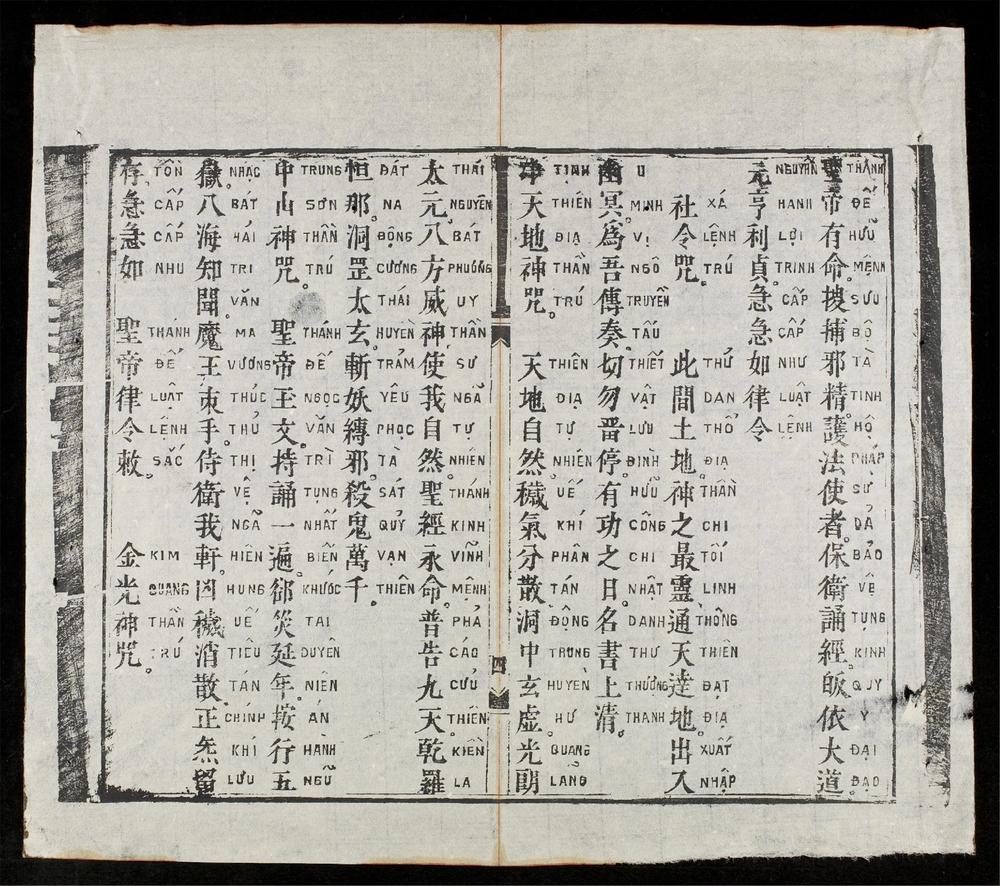 聖帝有命。搜捕邪精。護法使者。保衛誦經。皈依大道。
THÁNH ĐẾ HỮU MỆNH SƯU BỘ TÀ TINH HỘ PHÁP SƯ DẢ BẢO VỆ TỤNG KINH QUY Y ĐẠI ĐẠO
元亨利貞急急如律令
NGUYÊN HANH LỢI TRINH CẤP CẤP NHƯ LUẬT LỆNH
社令咒。 此間土地。神之最靈。通天達地。出入
XÁ LỆNH TRÚ THỬ DAN THỔ ĐỊA THẦN CHI TỐI LINH THÔNG THIÊN ĐẠT ĐỊA XUẤT NHẬP
幽冥。為吾傳奏。切勿畱停。有功之日。名書上清。
U MINH VỊ NGÔ TRUYỀN TẤU THIẾT VẬT LƯU ĐÌNH HỮU CÔNG CHI NHẬT DANH THƯ THƯỢNG THANH
净天地神咒。 天地自然。穢氣分散。洞中玄虛。光朗
TỊNH THIÊN ĐỊA THẦN TRÚ THIÊN ĐỊA TỰ NHIÊN UẾ KHÍ PHÂN TÁN ĐỘNG TRUNG HUYỀN HƯ QUANG LẢNG
四
太元。八方威神。使我自然。聖經永命。普告九天。乾羅
THÁI NGUYÊN BÁT PHƯƠNG UY THẦN SƯ NGÃ TỰ NHIÊN THÁNH KINH VĨNH MỆNH PHẢ CÁO CỬU THIÊN KIỀN LA
恒那。洞罡太玄。斬妖縛邪。殺鬼萬千。
ĐÁT NA ĐỘNG CƯƠNG THÁI HUYỀN TRẢM YÊU PHỌC TÀ SÁT QUỶ VẠN THIÊN
中山神咒。 聖帝玉文。持誦一遍。郤災延年。按行五
TRUNG SƠN THẦN TRÚ THÁNH ĐẾ NGỌC VĂN TRÌ TỤNG NHẤT BIẾN KHƯỚC TAI DUYÊN NIÊN ÁN HÀNH NGŨ
嶽。八海知聞。魔王束手。侍衛我軒。凶穢消散。正炁畱
NHẠC BÁT HẢI TRI VĂN MA VƯƠNG THÚC THỦ THỊ VỆ NGÃ HIÊN HUNG UẾ TIÊU TÁN CHÍNH KHÍ LƯU
存。急急如 聖帝律令敕。 金光神咒。
TỒN CẤP CẤP NHU THÁNH ĐẾ LUẬT LỆNH SẮC KIM QUANG THẦN TRÚ